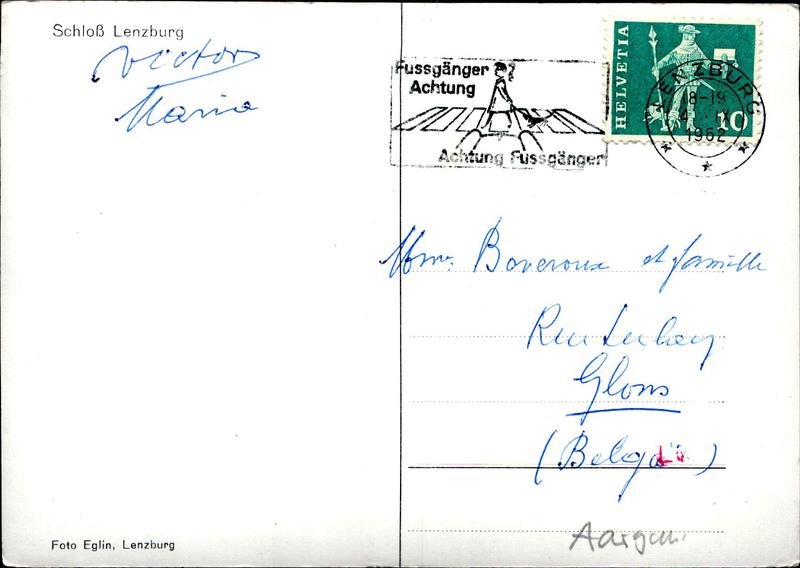 Schloß Lenzburg
Victor
Maria
Fussgänger
Achtung
Achtung Fussgänger
HELVETIA
10
LENZBURG
18-19
IX
1962
Mme. Boveroux et famille
Rue
Glons
(Belga
Foto Eglin, Lenzburg
Aargau